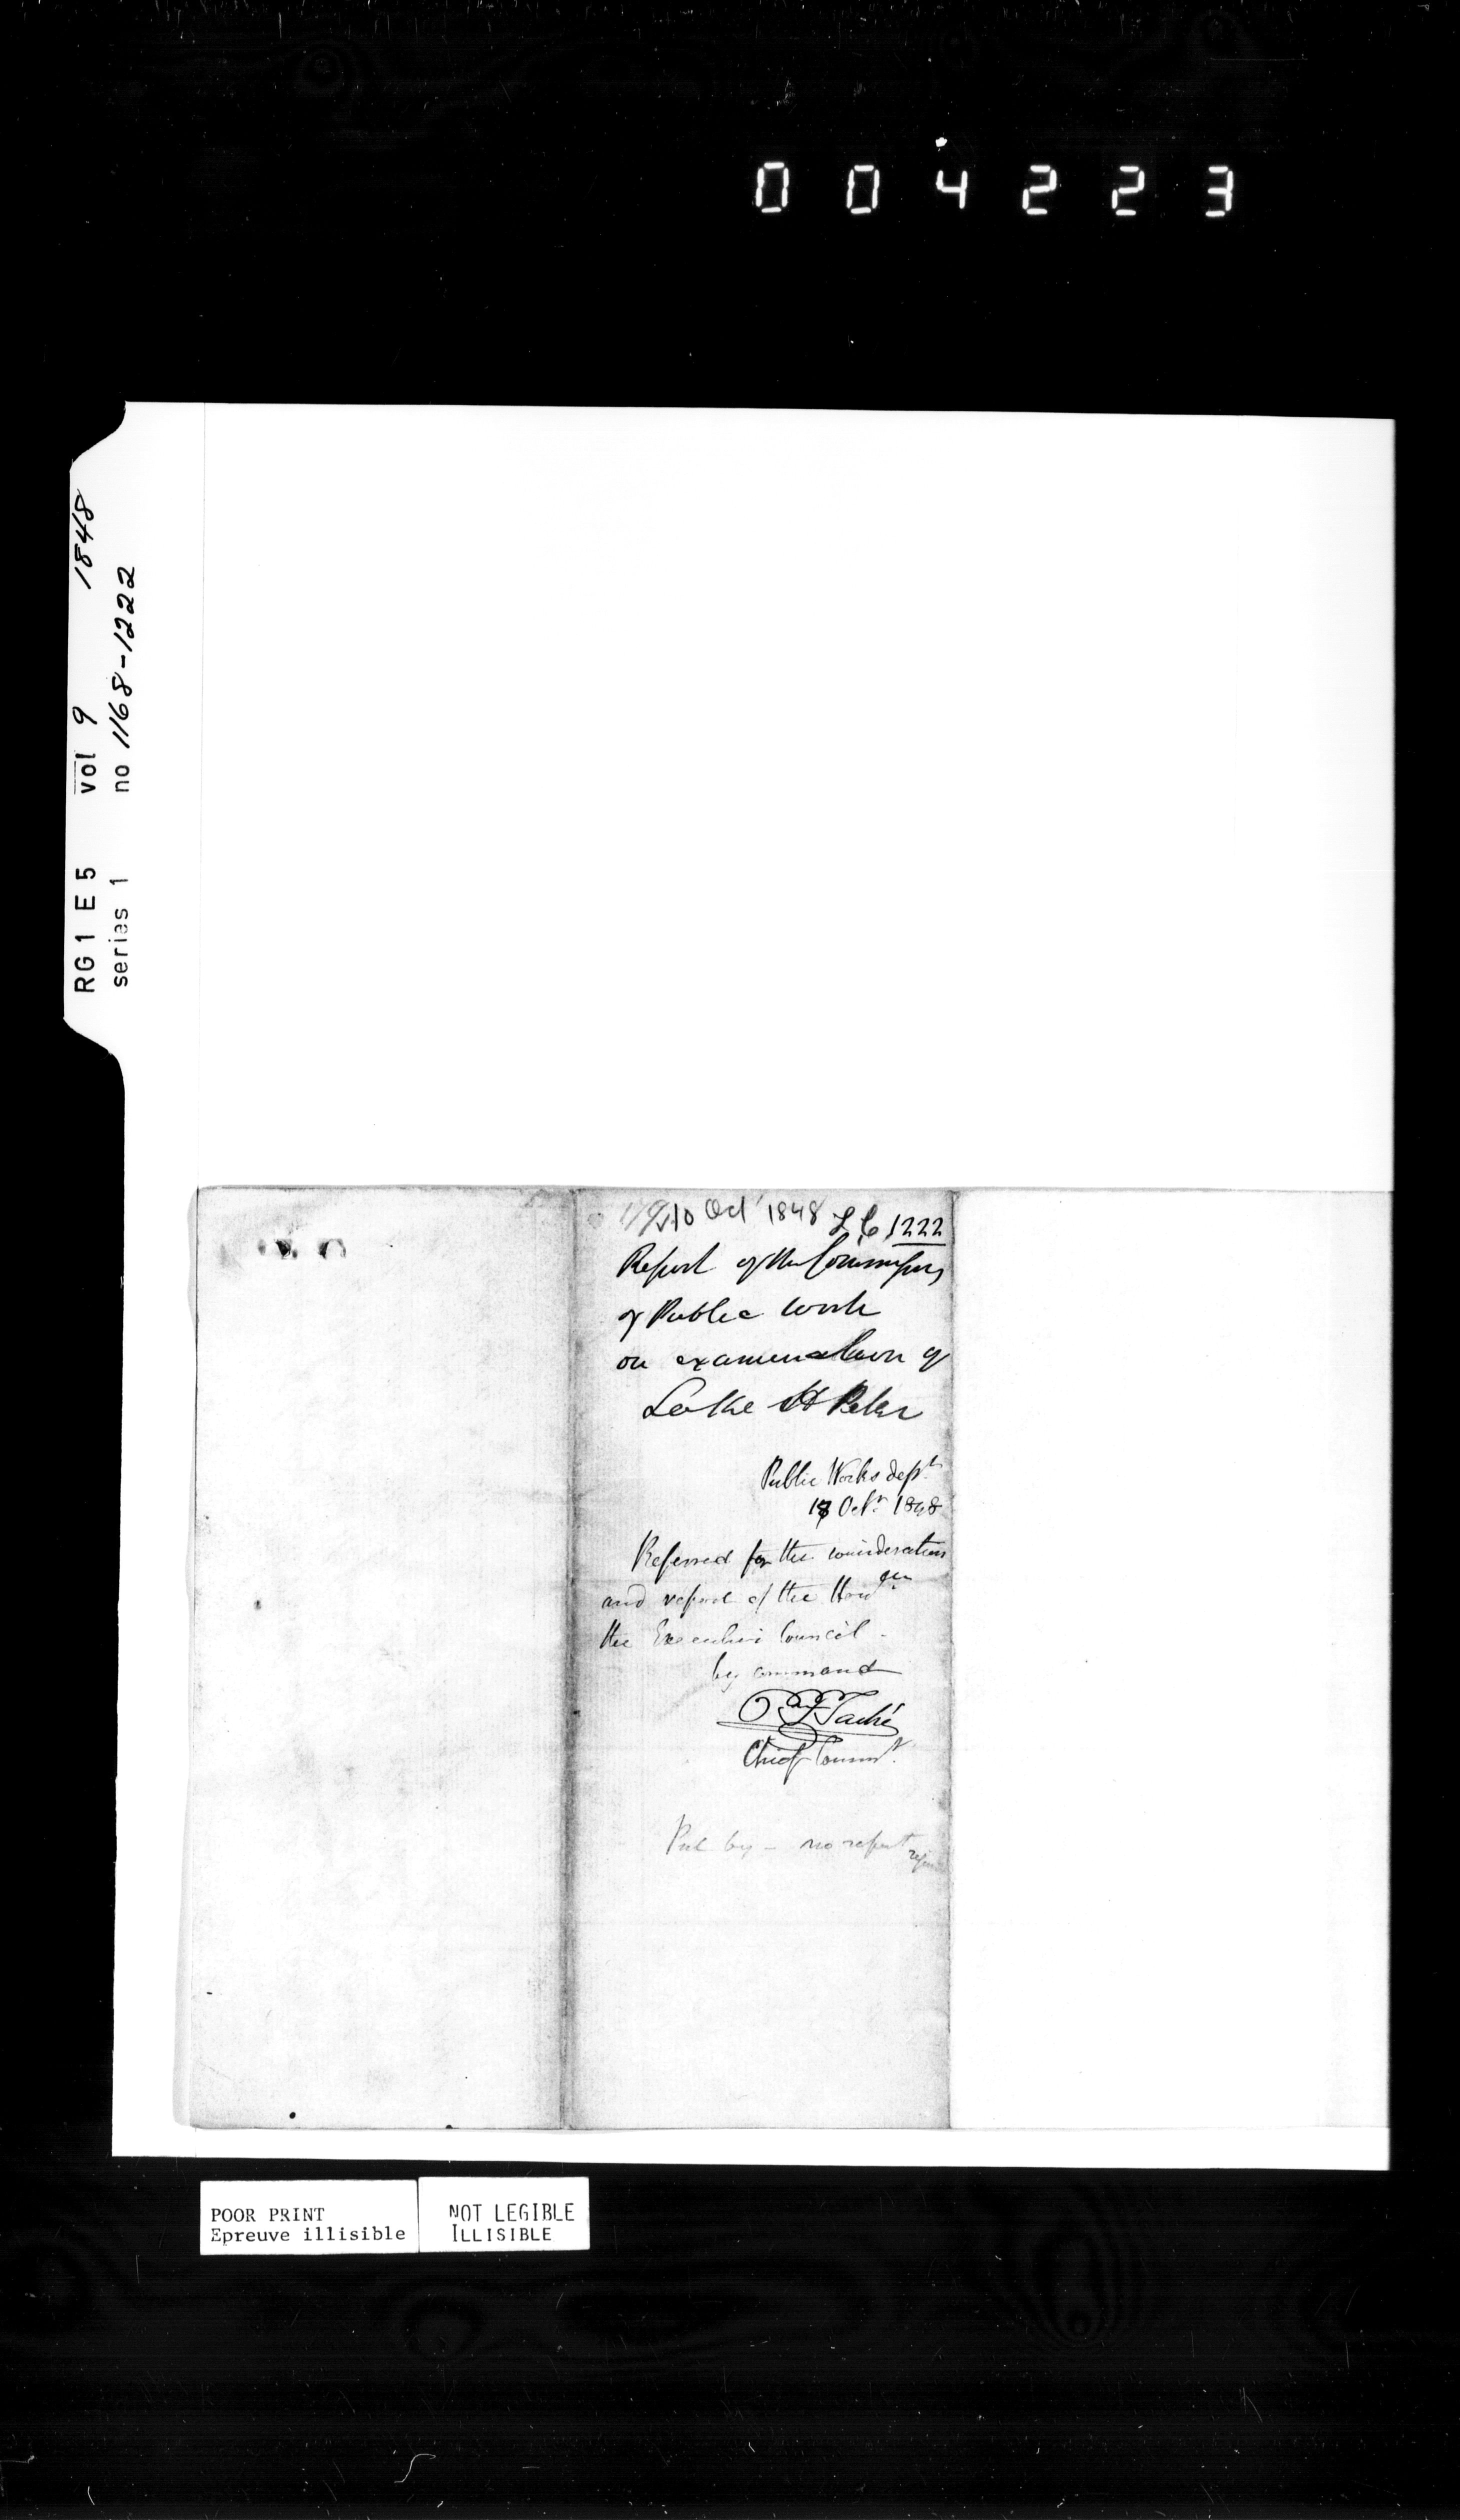 004223
RG1 E5 vol 9 1848
series 1 no 1168-1222
10 Oct 1848 L C 1222
Report of the Commissrs
of Public Work
on examination of
Lake St Peter
Public Works dept
Octr 1848
Referred for the consideration
and report of the Hon
the Executive Council -
by command
Taché
Chief Commr
Put by - no report
POOR PRINT
Epreuve illisible
NOT LEGIBLE
ILLISIBLE